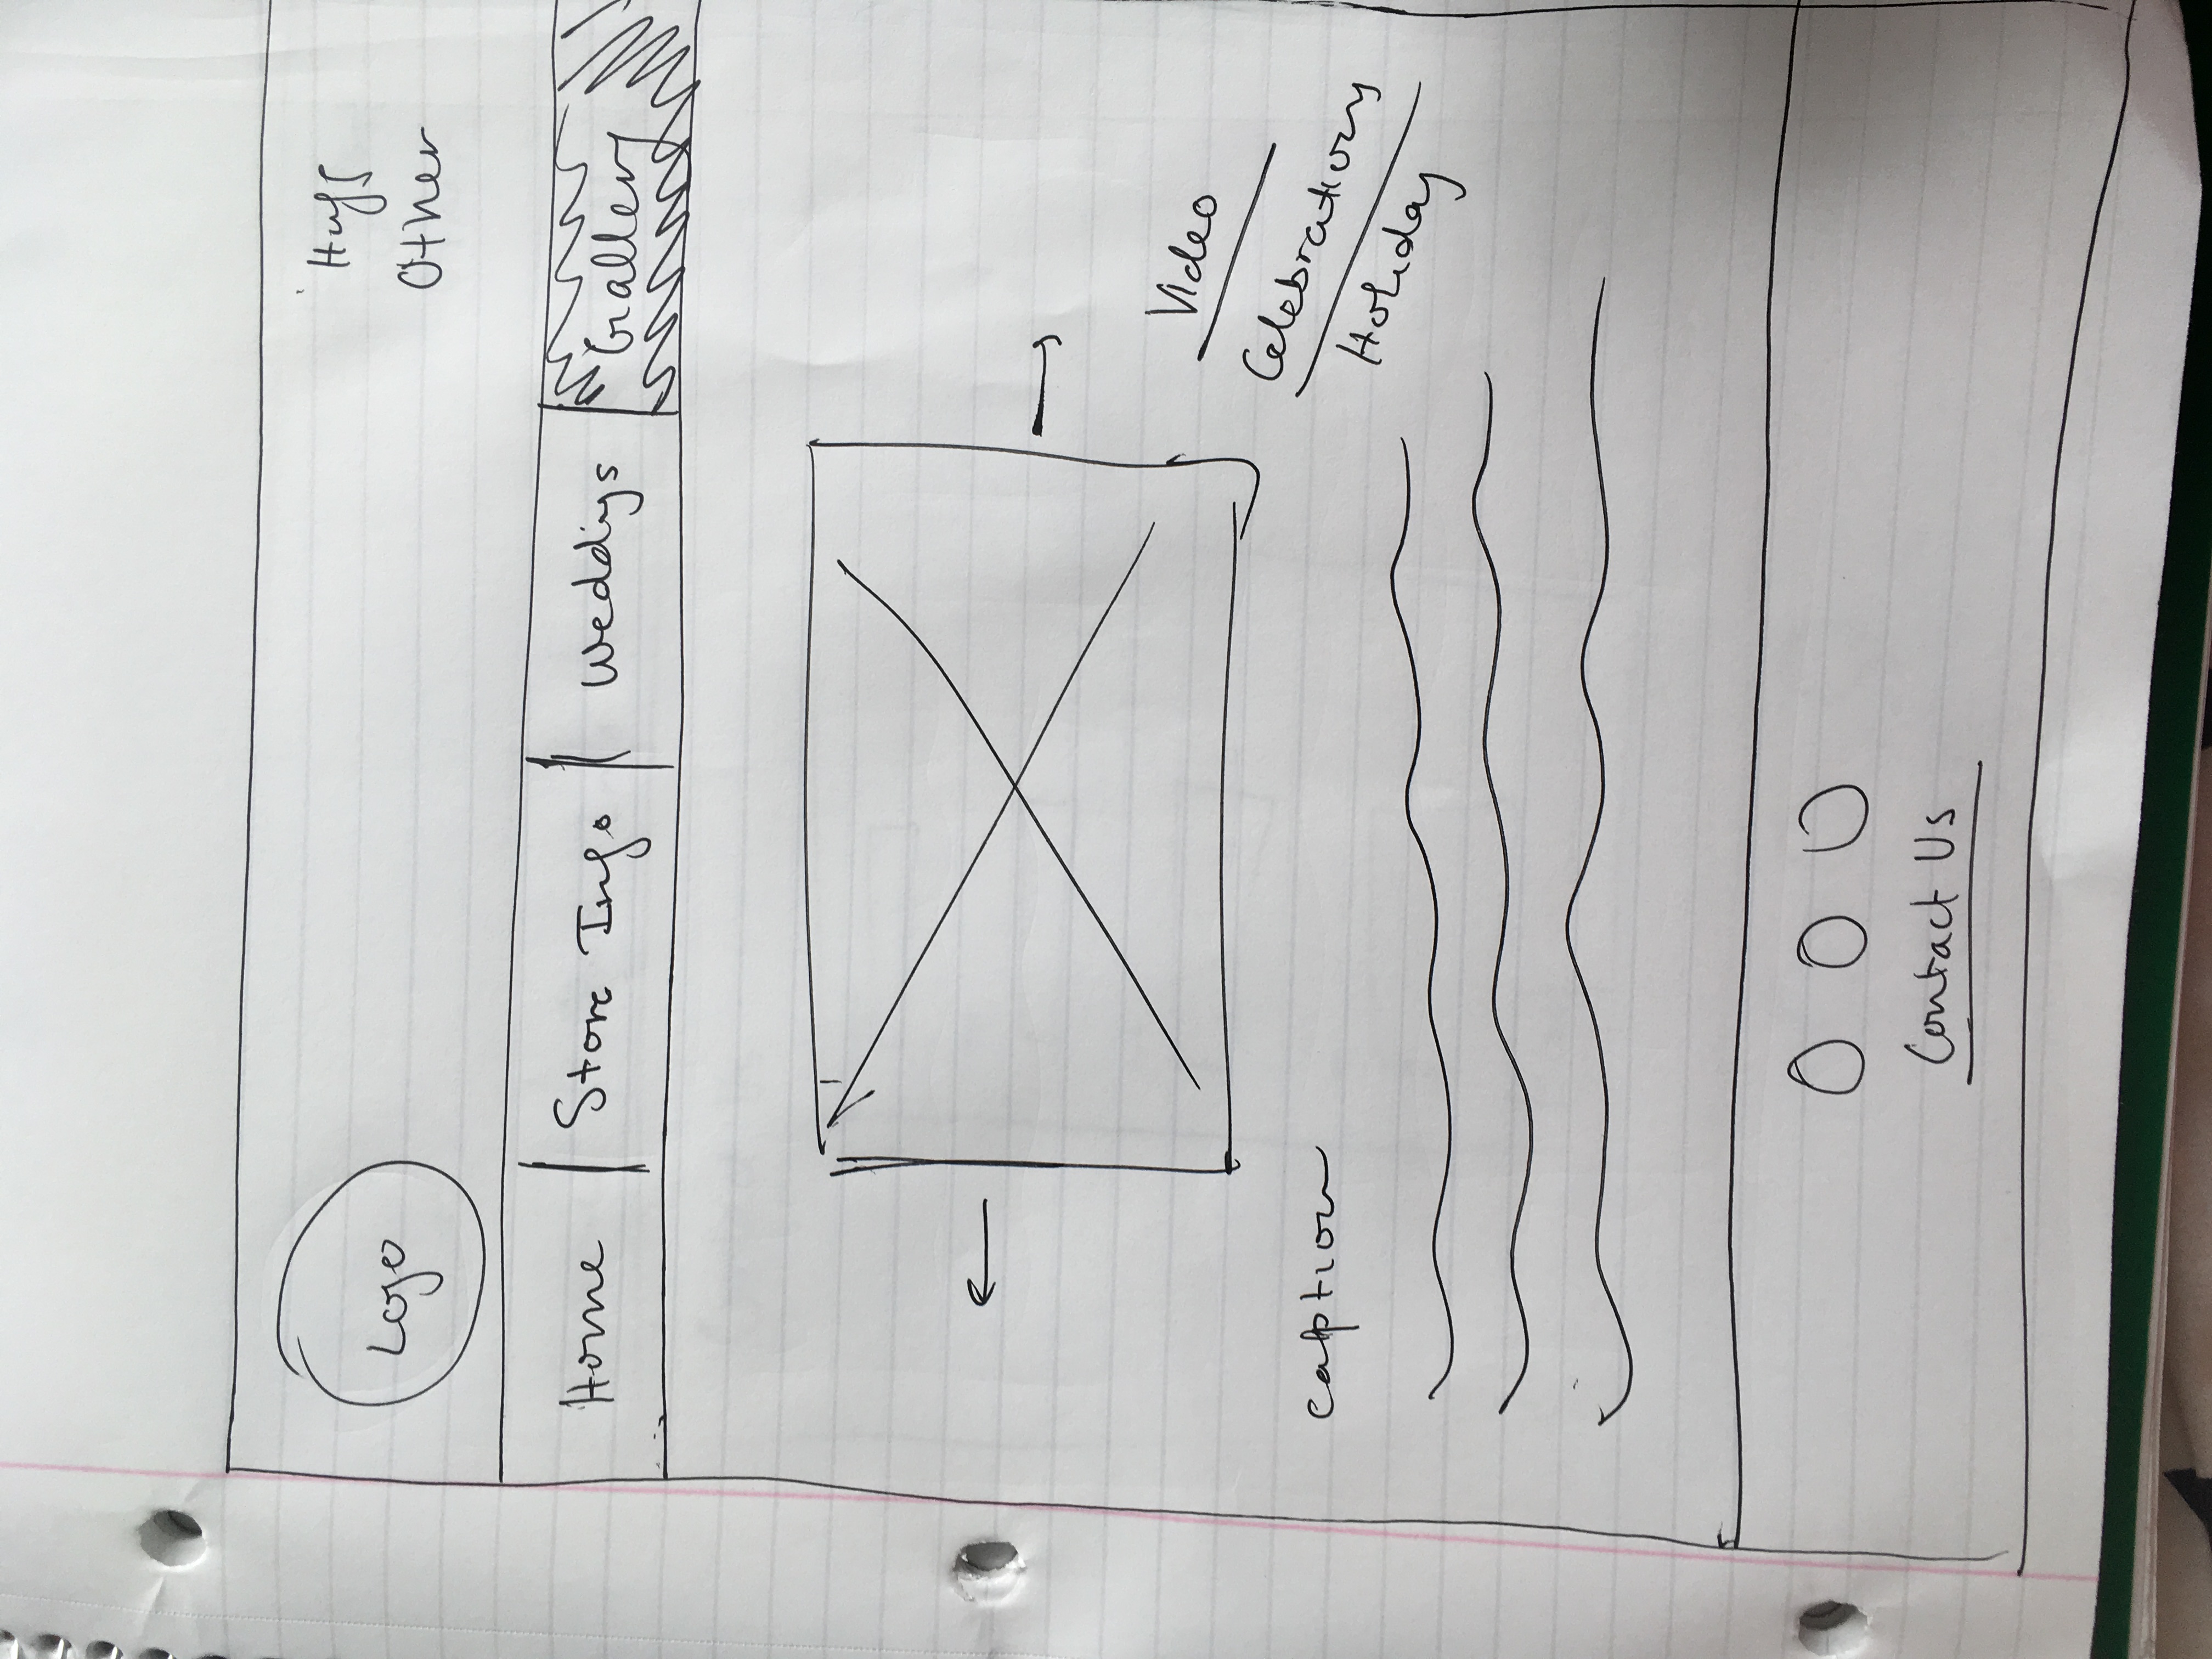 Logo
Hugs
Other
Home
Store Info
Weddings
Gallery
Video
Celebrations
Holiday
caption
Contact Us